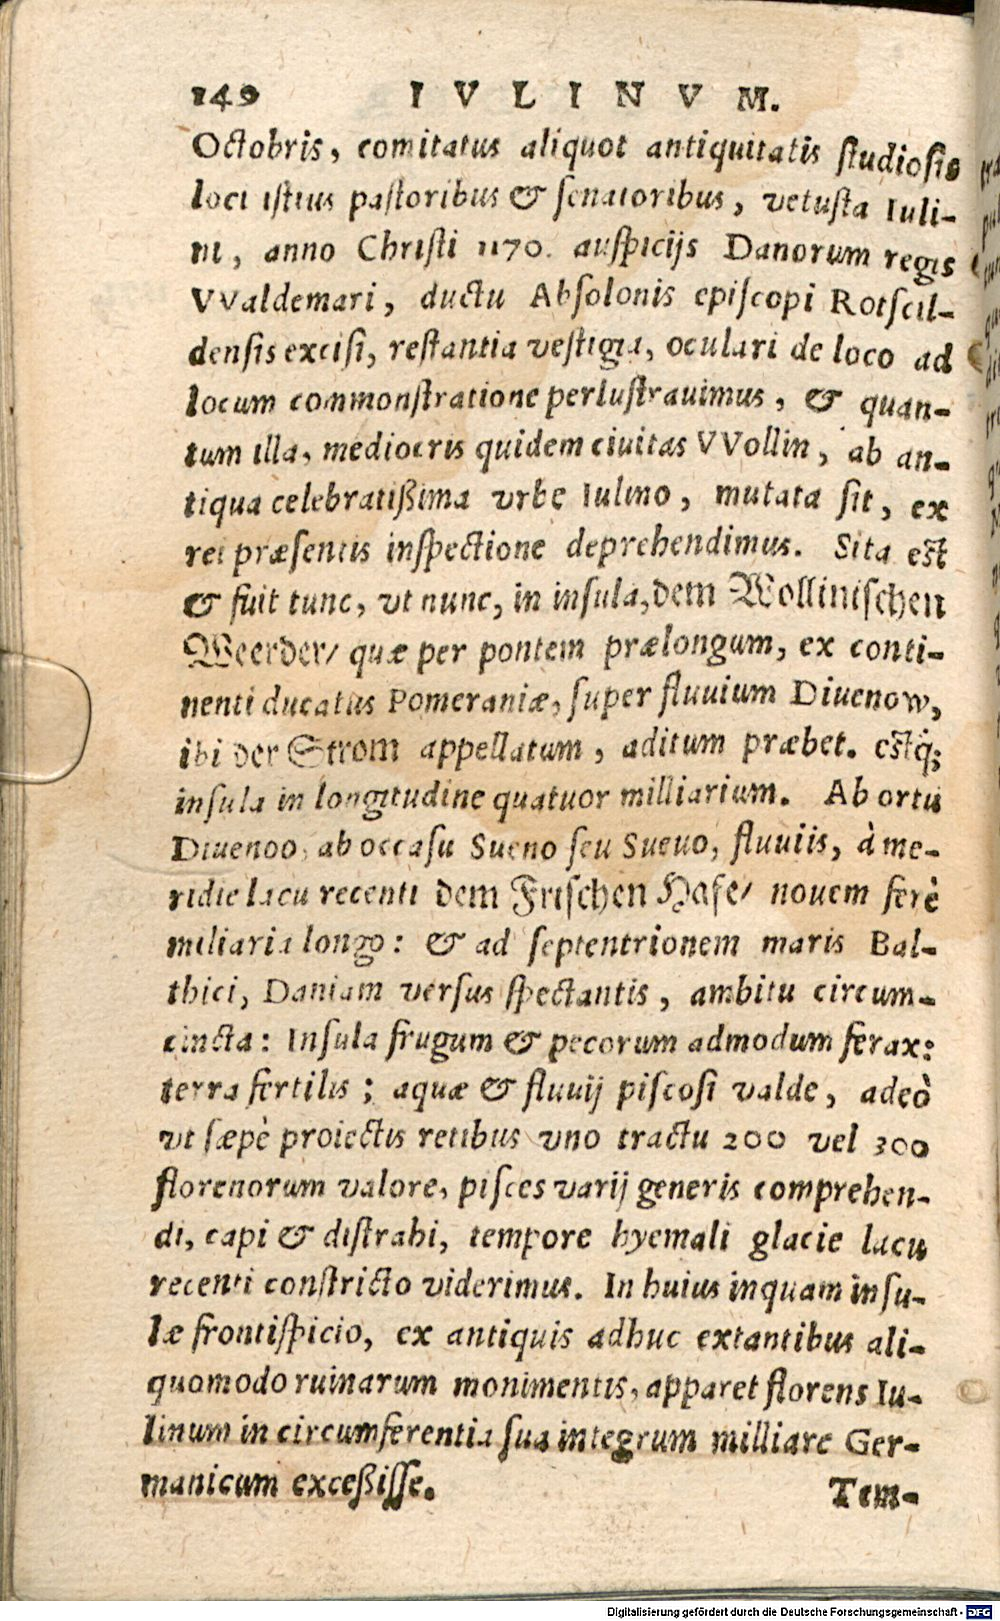 149 IVLINVM.
Octobris, comitatus aliquot antiquitatis ſtudioſis
loci iſtius paſtoribus & ſenatoribus, vetuſta Iuli-
ni, anno Chriſti 1170. auſpicijs Danorum regis
VValdemari, ductu Abſolonis epiſcopi Rotſcil-
denſis exciſi, reſtantia veſtigia, oculari de loco ad
locum commonſtratione perluſtrauimus, & quan-
tum illa, mediocris quidem ciuitas VVollin, ab an-
tiqua celebratißima vrbe Iulino, mutata ſit, ex
rei præſentis inſpectione deprehendimus. Sita eſt
& fuit tunc, vt nunc, in inſula, dem Wolliniſchen
Weerder/ quæ per pontem prælongum, ex conti-
nenti ducatus Pomeraniæ, ſuper fluuium Diuenow,
ibi der Strom appellatum, aditum præbet. eſtq́;
inſula in longitudine quatuor milliarium. Ab ortu
Diuenoo, ab occaſu Sueno ſeu Sueuo, fluuiis, à me-
ridie lacu recenti dem Friſchen Hafe/ nouem ferè
miliaria longo: & ad ſeptentrionem maris Bal-
thici, Daniam verſus ſpectantis, ambitu circum-
cincta: Inſula frugum & pecorum admodum ferax:
terra fertilis; aquæ & fluuij piſcoſi valde, adeò
vt ſæpè proiectis retibus vno tractu 200 vel 300
florenorum valore, piſces varij generis comprehen-
di, capi & diſtrahi, tempore hyemali glacie lacu
recenti conſtricto viderimus. In huius inquam inſu-
læ frontiſpicio, ex antiquis adhuc extantibus ali-
quomodo ruinarum monimentis, apparet florens Iu-
linum in circumferentia ſua integrum milliare Ger-
manicum exceßiſſe.
Tem-
Digitalisierung gefördert durch die Deutsche Forschungsgemeinschaft - DFG